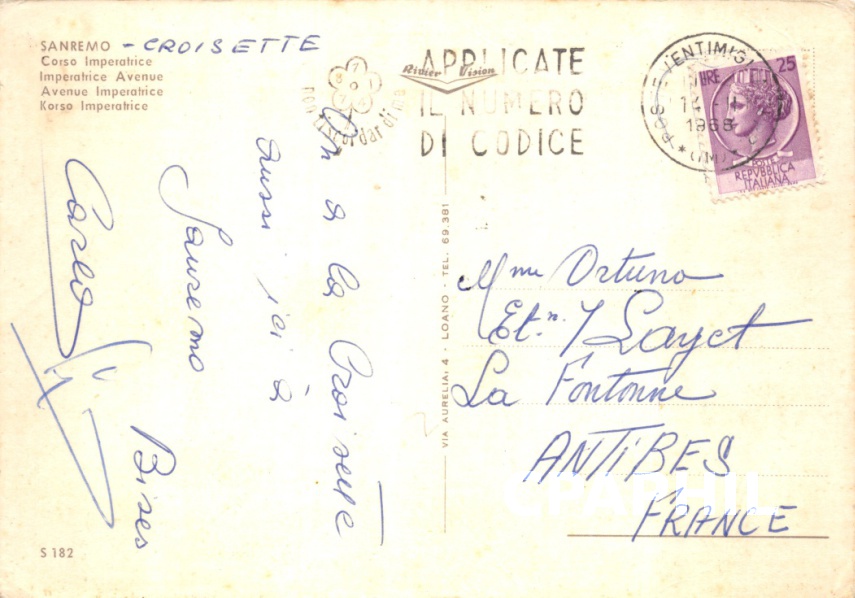 SANREMO - CROISETTE
Corso Imperatrice
Imperatrice Avenue
Avenue Imperatrice
Korso Imperatrice
On a la Croisette
aussi ici à
Sanremo
Bises
Carlo
S 182
non ti scordar di me
Rivier Vision
APPLICATE
IL NUMERO
DI CODICE
VIA AURELIA, 4 - LOANO - TEL. 69.381
1968
LIRE 25
POSTE
REPVBBLICA
ITALIANA
Mme Ortuno
Et.n. 7 Layet
La Fontonne
ANTIBES
FRANCE
CPAPHIL